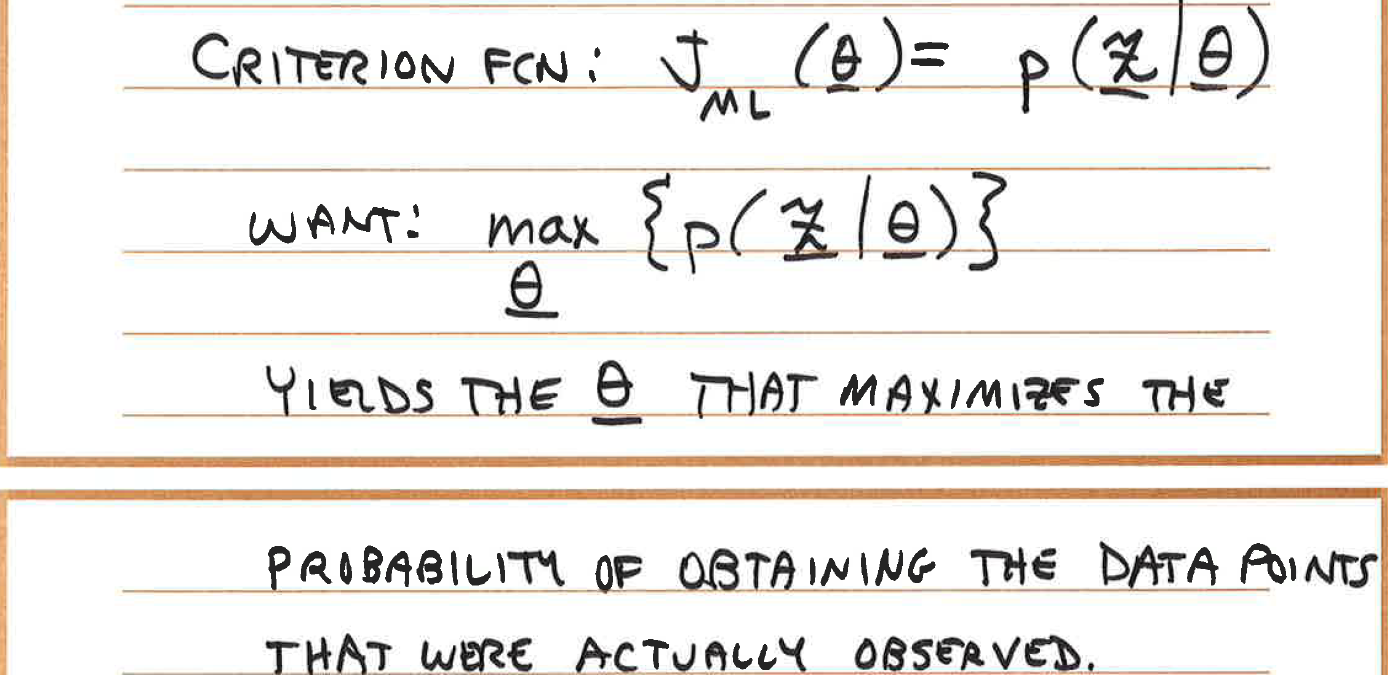 CRITERION FCN: J_ML (θ) = p(z|θ)
WANT: max {p(z|θ)}
θ
YIELDS THE θ THAT MAXIMIZES THE
PROBABILITY OF OBTAINING THE DATA POINTS
THAT WERE ACTUALLY OBSERVED.